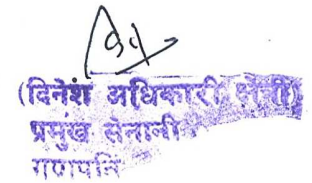 (दिनेश अधिकारी क्षेत्री)
प्रमुख सेनानी
गणपति